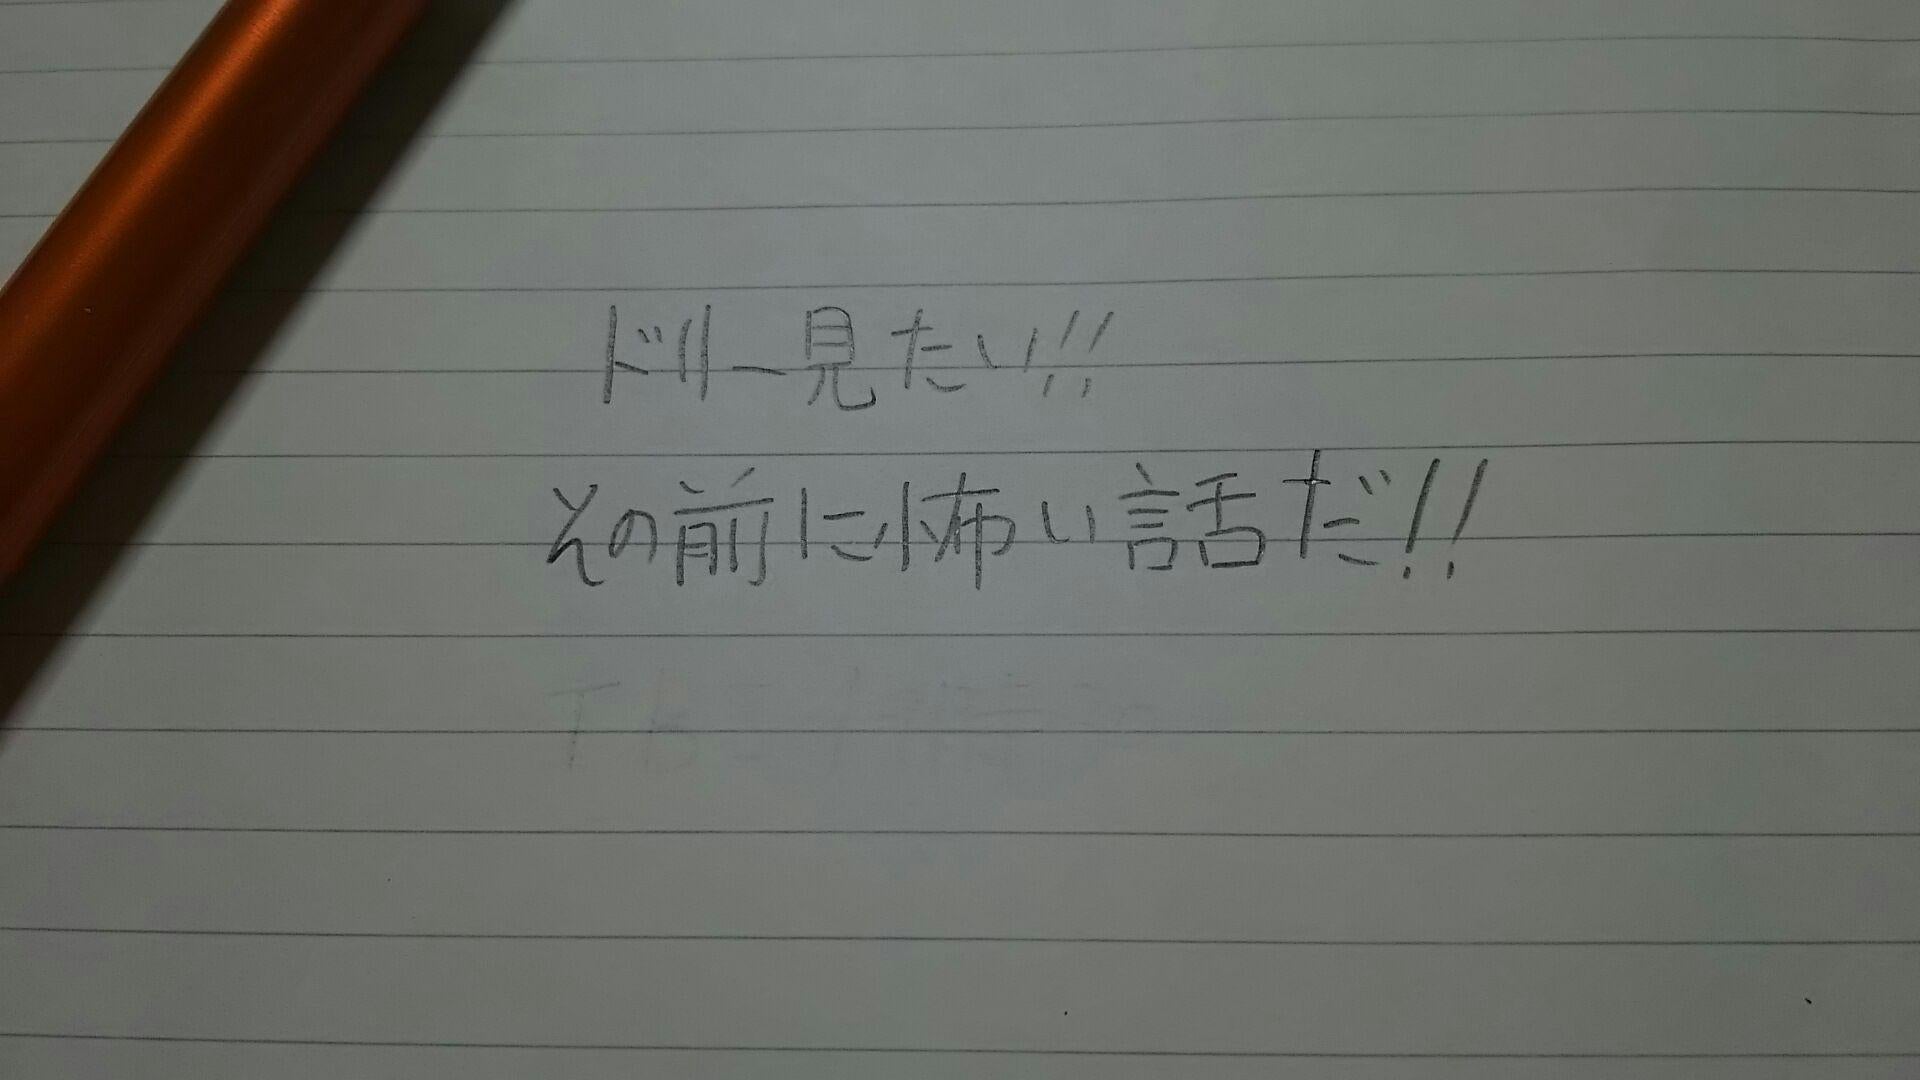 ドリー見たい!!
その前に怖い話だ!!